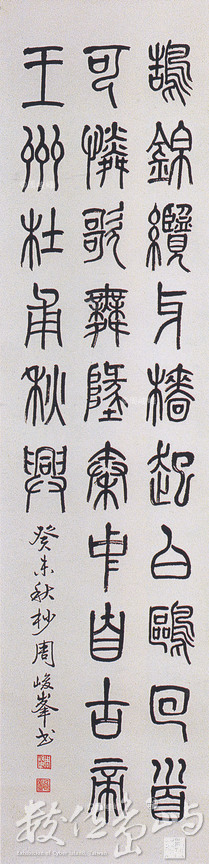 鵠錦纜牙檣起白鷗回首
可憐歌舞地秦中自古帝
王州杜甫秋興
癸未秋杪周峻峯書
數位島嶼